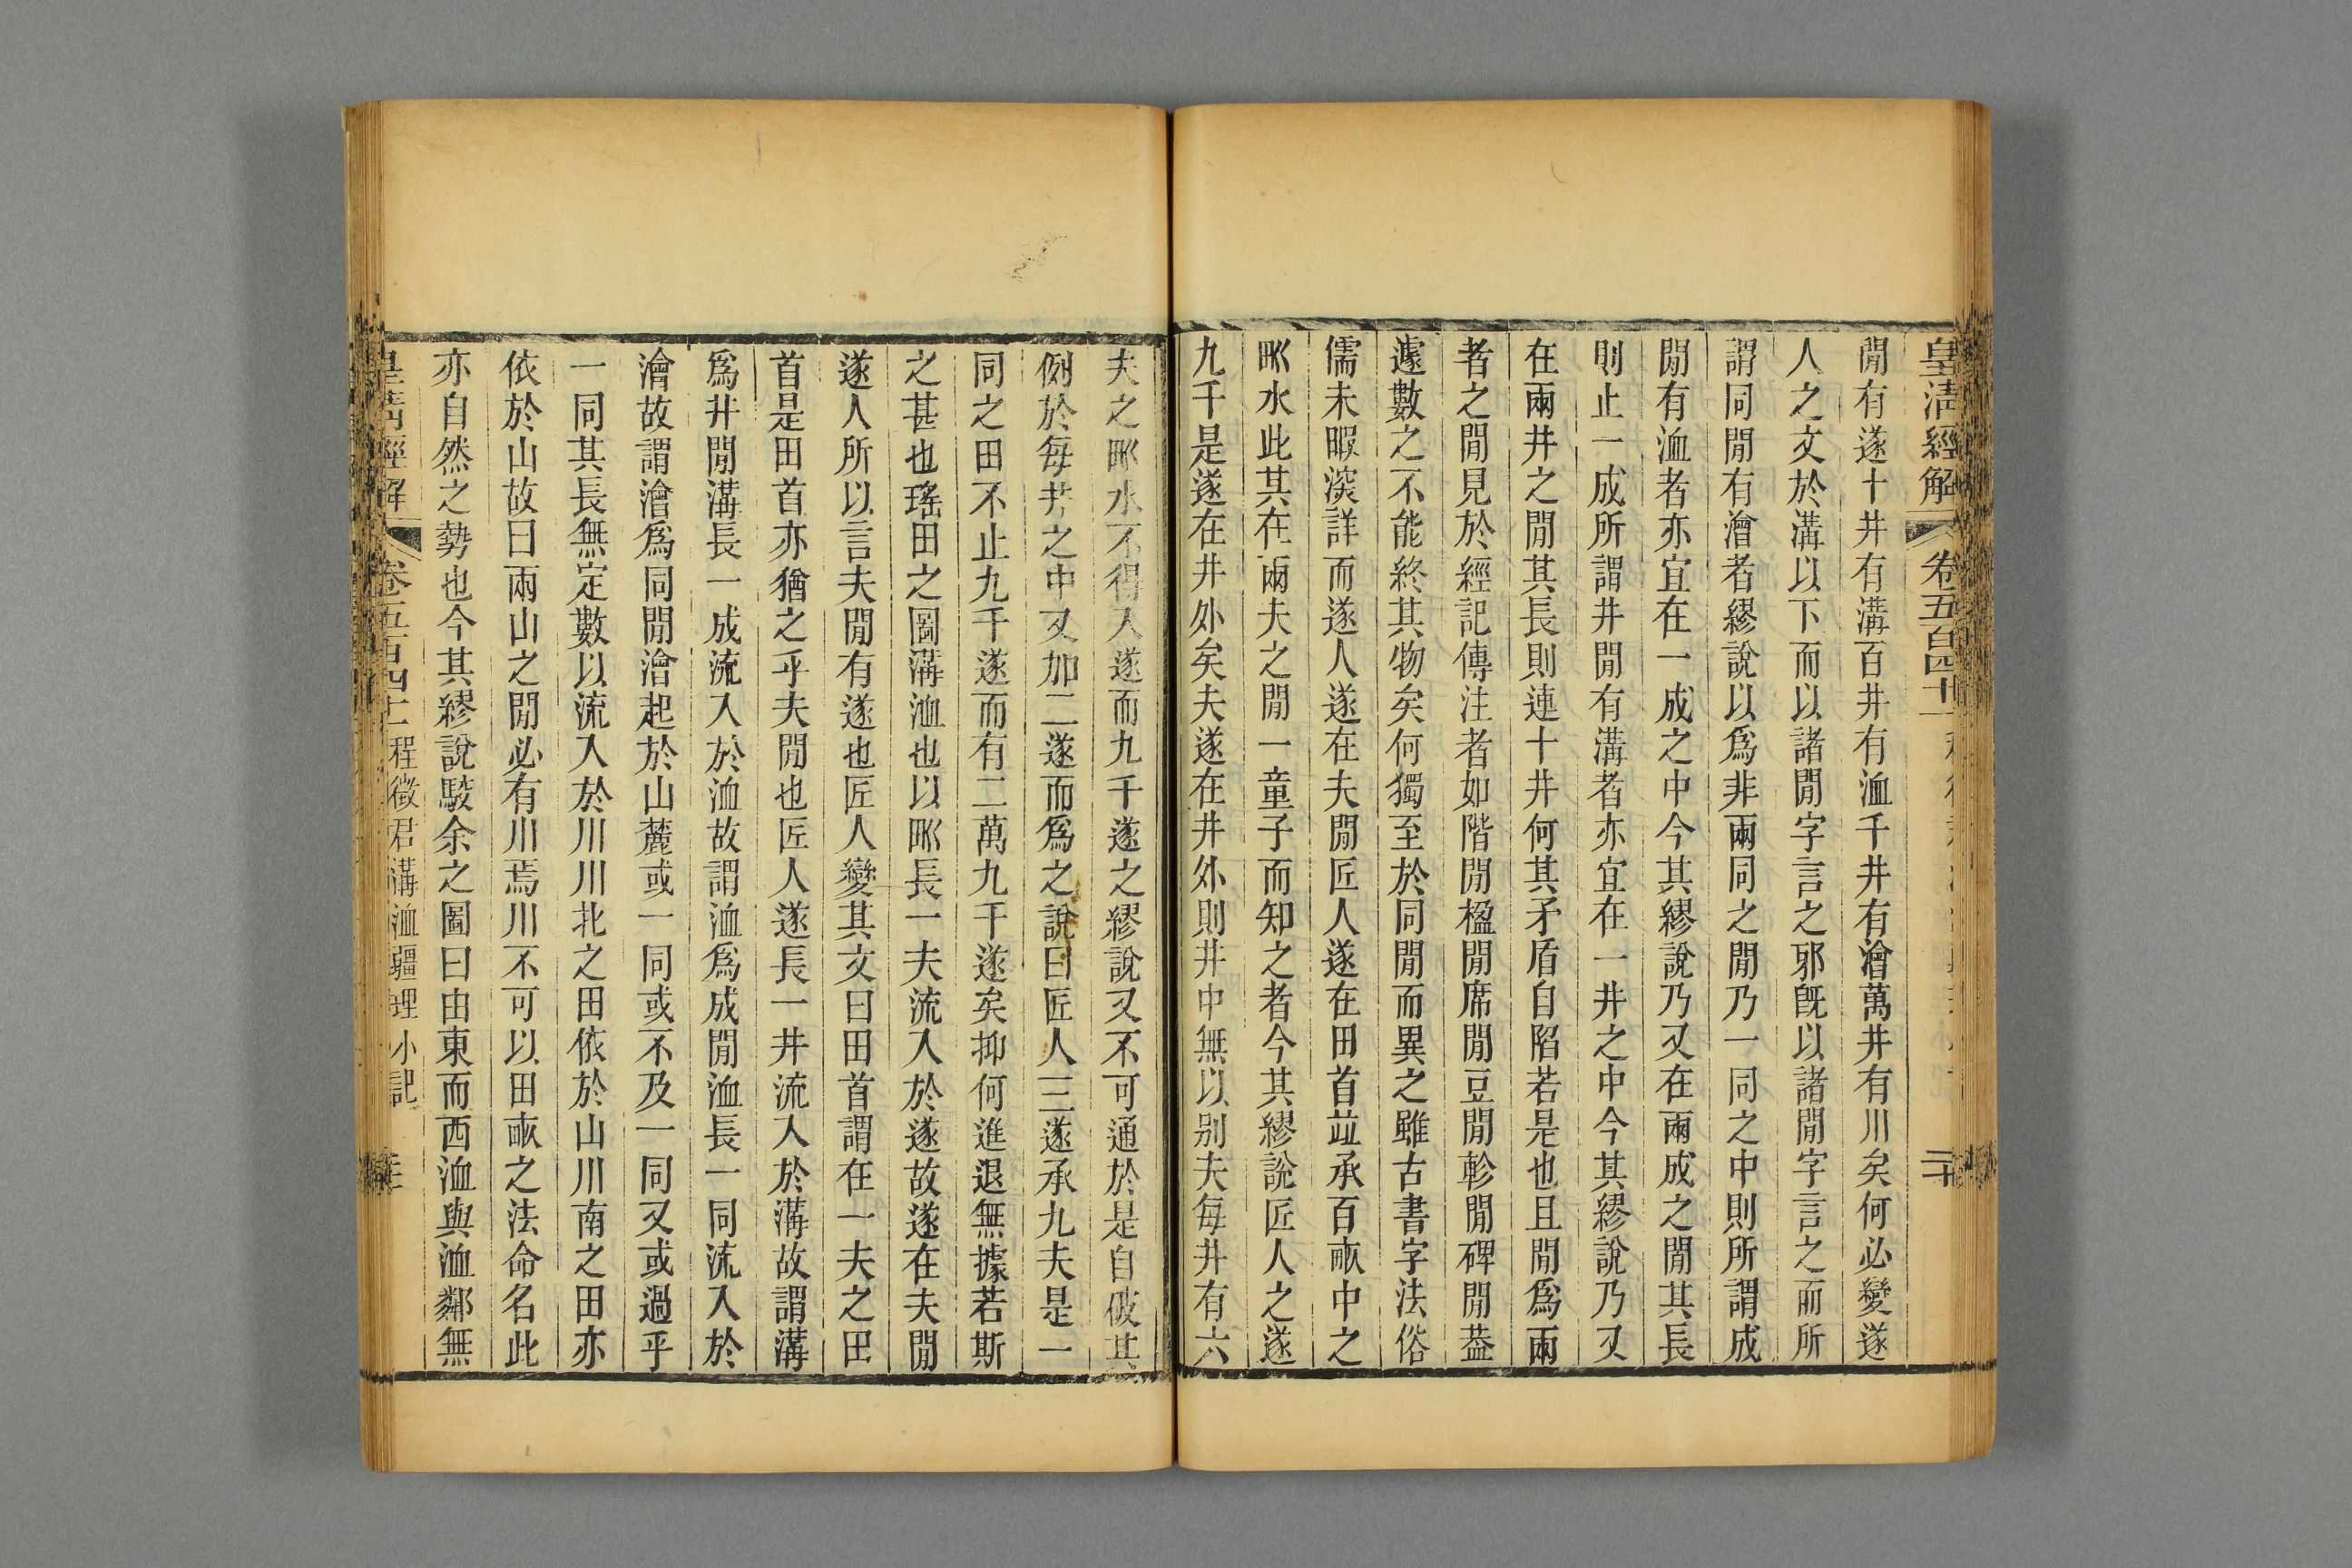 皇清經解 卷五百四十一
二十
閒有遂十井有溝百井有洫千井有澮萬井有川矣何必變遂
人之文於溝以下而以諸閒字言之邪旣以諸閒字言之而所
謂同閒有澮者繆說以爲非兩同之閒乃一同之中則所謂成
閒有洫者亦宜在一成之中今其繆說乃又在兩成之閒其長
則止一成所謂井閒有溝者亦宜在一井之中今其繆說乃又
在兩井之閒其長則連十井何其矛盾自陷若是也且閒爲兩
者之閒見於經記傳注者如階閒楹閒席閒豆閒軫閒碑閒葢
遽數之不能終其物矣何獨至於同閒而異之雖古書字法俗
儒未暇深詳而遂人遂在夫閒匠人遂在田首竝承百畞中之
𤰕水此其在兩夫之閒一童子而知之者今其繆說匠人之遂
九千是遂在井外矣夫遂在井外則井中無以别夫每井有六
夫之𤰕水不得入遂而九千遂之繆說又不可通於是自破其
例於每井之中又加二遂而爲之說曰匠人三遂承九夫是一
同之田不止九千遂而有二萬九千遂矣抑何進退無據若斯
之甚也瑤田之圖溝洫也以𤰕長一夫流入於遂故遂在夫閒
遂人所以言夫閒有遂也匠人變其文曰田首謂在一夫之田
首是田首亦猶之乎夫閒也匠人遂長一井流入於溝故謂溝
爲井閒溝長一成流入於洫故謂洫爲成閒洫長一同流入於
澮故謂澮爲同閒澮起於山麓或一同或不及一同又或過乎
一同其長無定數以流入於川川北之田依於山川南之田亦
依於山故曰兩山之閒必有川焉川不可以田畞之法命名此
亦自然之勢也今其繆說駁余之圖曰由東而西洫與洫鄰無
皇清經解 卷五百四十一 程徵君溝洫疆理小記